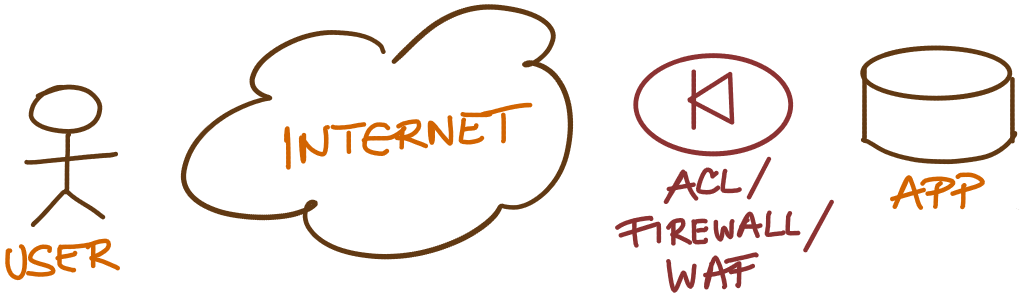 USER
INTERNET
ACL/
FIREWALL/
WAF
APP